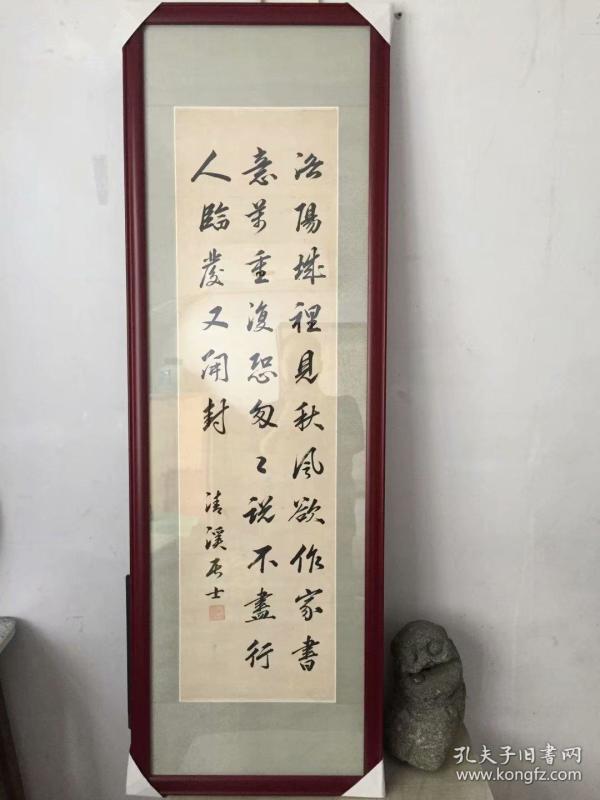 洛陽城裡見秋風欲作家書
意万重復恐匆々説不盡行
人臨發又開封
清溪居士
孔夫子旧書网
www.kongfz.com